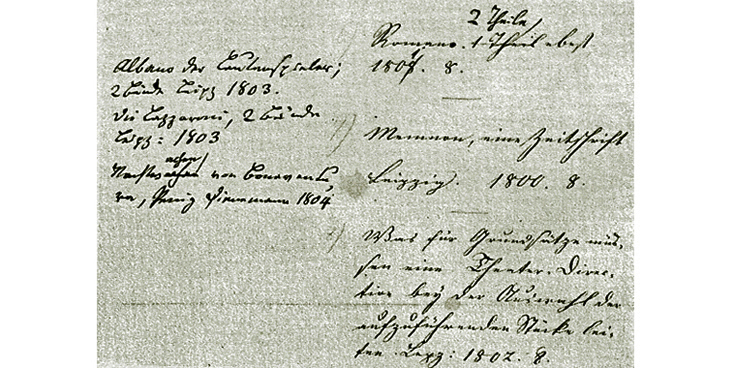 Albano der Lautenspieler;
2 Bände Leipz 1803.
Die Lazzaroni, 2 Bände
Leipz: 1803
achen
Nachtwachen von Bonaventu
ra, Penig Dienemann 1804
2 Theile,
Romano. 1 Theil ebest
180 . 8.
7) Memnon, eine Zeitschrift
Leipzig. 1800. 8.
Was für Grundsätze müs-
sen eine Theater-Direc-
tion bey der Auswahl der
aufzuführenden Stücke lei-
ten. Lepz: 1802. 8.